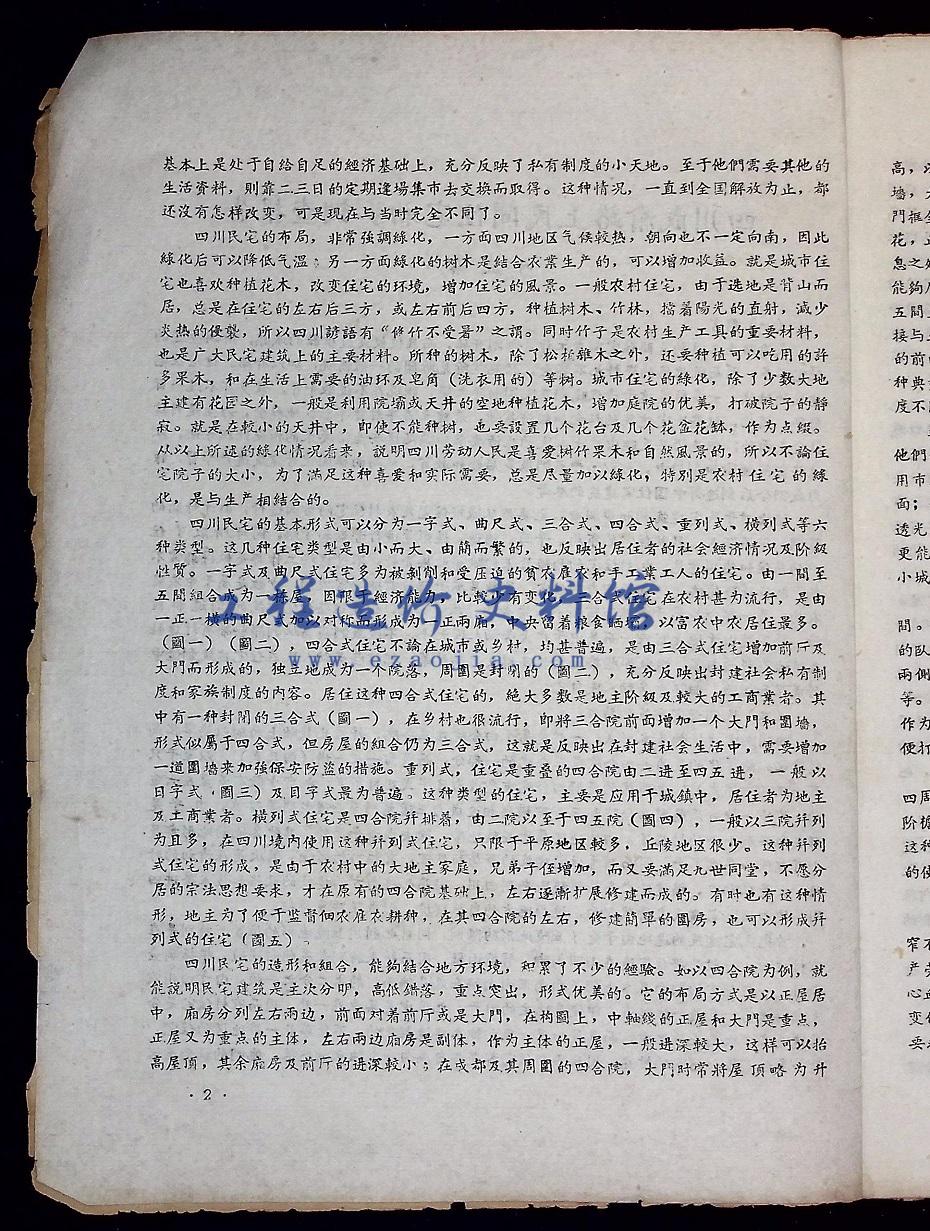 基本上是处于自给自足的經济基础上，充分反映了私有制度的小天地。至于他們需要其他的
生活资料，則靠二三日的定期逢場集市去交換而取得。这种情况，一直到全国解放为止，都
还沒有怎样改变，可是现在与当时完全不同了。
四川民宅的布局，非常強調綠化，一方面四川地区气候較热，朝向也不一定向南，因此
綠化后可以降低气温；另一方面綠化的树木是結合农業生产的，可以增加收益。就是城市住
宅也喜欢种植花木，改变住宅的环境，增加住宅的風景。一般农村住宅，由于选地是背山而
居，总是在住宅的左右后三方，或左右前后四方，种植树木、竹林，擋着陽光的直射，減少
炎热的侵襲，所以四川諺語有“修竹不受暑”之謂。同时竹子是农村生产工具的重要材料，
也是广大民宅建筑上的主要材料。所种的树木，除了松柏雜木之外，还要种植可以吃用的許
多果木，和在生活上需要的油环及皂角（洗衣用的）等树。城市住宅的綠化，除了少数大地
主建有花园之外，一般是利用院壩或天井的空地种植花木，增加庭院的优美，打破院子的靜
寂。就是在較小的天井中，即使不能种树，也要設置几个花台及几个花盆花缽，作为点綴。
从以上所述的綠化情况看来，説明四川劳动人民是喜爱树竹果木和自然風景的，所以不論住
宅院子的大小，为了滿足这种喜爱和实际需要，总是尽量加以綠化，特別是农村住宅的綠
化，是与生产相結合的。
四川民宅的基本形式可以分为一字式、曲尺式、三合式、四合式、重列式、横列式等六
种类型。这几种住宅类型是由小而大、由簡而繁的，也反映出居住者的社会經濟情况及阶級
性質。一字式及曲尺式住宅多为被剝削和受压迫的貧农雇农和手工業工人的住宅。由一間至
五間組合成为一栋屋，因限于經济能力，比較少有变化。三合式住宅在农村甚为流行，是由
一正一横的曲尺式加以对称而形成为一正兩廂，中央留着粮食晒壩，以富农中农居住最多。
（圖一）（圖二），四合式住宅不論在城市或乡村，均甚普遍，是由三合式住宅增加前厅及
大門而形成的，独立地成为一个院落，周圍是封閉的（圖二），充分反映出封建社会私有制
度和家族制度的內容。居住这种四合式住宅的，絕大多数是地主阶級及較大的工商業者。其
中有一种封閉的三合式（圖一），在乡村也很流行，即將三合院前面增加一个大門和圍墙，
形式似屬于四合式，但房屋的組合仍为三合式，这就是反映出在封建社会生活中，需要增加
一道圍墙来加強保安防盜的措施。重列式，住宅是重叠的四合院由二进至四五进，一般以
日字式（圖三）及目字式最为普遍。这种类型的住宅，主要是应用于城鎮中，居住者为地主
及土商業者。横列式住宅是四合院幷排着，由二院以至于四五院（圖四），一般以三院幷列
为且多，在四川境内使用这种幷列式住宅，只限于平原地区較多，丘陵地区很少。这种幷列
式住宅的形成，是由于农村中的大地主家庭，兄弟子侄增加，而又要滿足九世同堂，不愿分
居的宗法思想要求，才在原有的四合院基础上，左右逐漸扩展修建而成的。有时也有这种情
形，地主为了便于监督佃农雇农耕种，在其四合院的左右，修建簡單的圍房，也可以形成幷
列式的住宅（圖五）。
四川民宅的造形和組合，能夠結合地方环境，和累了不少的經驗。如以四合院为例，就
能説明民宅建筑是主次分明，高低錯落，重点突出，形式优美的。它的布局方式是以正屋居
中，廂房分列左右兩边，前面对着前厅或是大門，在构圖上，中軸綫的正屋和大門是重点，
正屋又为重点的主体，左右兩边廂房是副体，作为主体的正屋，一般进深較大，这样可以抬
高屋頂，其余廂房及前厅的进深較小；在成都及其周圍的四合院，大門时常將屋頂略为升
·2·
工程造价史料馆
www.ezaojia.com
高，以
墙，
門框
花，
息之处
能夠
五間
接与
的前
种典
度不
他們
用市
面；
透光
更能
小城
間。
的卧
兩側
等。
作为
便打
四周
阶檐
这种
的使
窄不
产劳
心血
变化
要